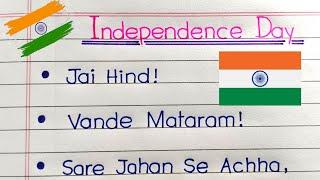 Independence Day
• Jai Hind!
• Vande Mataram!
• Sare Jahan Se Achha,